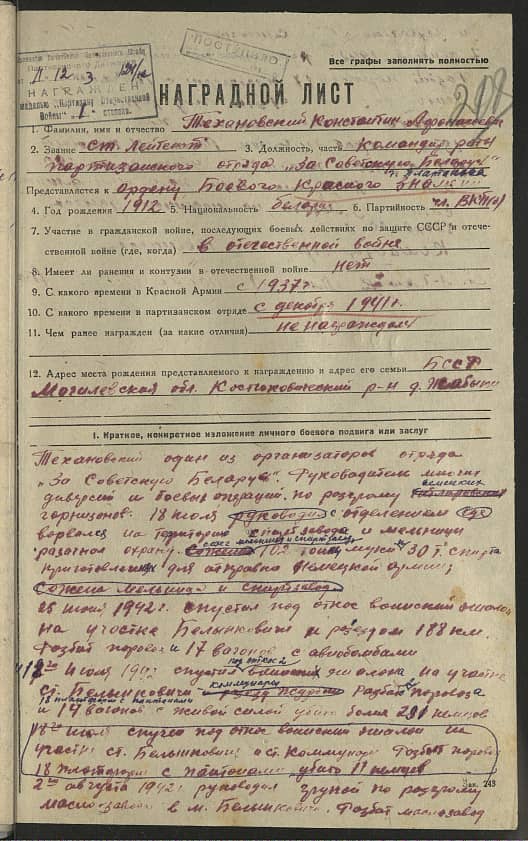 ПОСТУПИЛО
Все графы заполнять полностью
II-12
НАГРАЖДЕН
медалью "Партизану Отечественной
Войны" I степени.
НАГРАДНОЙ ЛИСТ
1. Фамилия, имя и отчество Техановский Константин
2. Звание ст. Лейтенант 3. Должность, часть Командир роты
партизанского отряда "За Советскую Беларусь"
Представляется к ордену Боевого Красного Знамени
4. Год рождения 1912 5. Национальность белорус 6. Партийность чл. ВКП(б)
7. Участие в гражданской войне, последующих боевых действиях по защите СССР и отече-
ственной войне (где, когда) в отечественной войне
8. Имеет ли ранения и контузии в отечественной войне нет
9. С какого времени в Красной Армии с 1937 г.
10. С какого времени в партизанском отряде с декабря 1941 г.
11. Чем ранее награжден (за какие отличия) не награждался
12. Адрес места рождения представляемого к награждению и адрес его семьи БССР
Могилевская обл. Костюковический р-н д.
I. Краткое, конкретное изложение личного боевого подвига или заслуг
Техановский один из организаторов отряда
"За Советскую Беларусь". Руководитель многих
немецких
диверсий и боевых операций по разгрому
гарнизонов. 18 июля руководил с отделением
ворвался на территорию спиртзавода и мельницы
разогнал охрану. 102 тонн муки 30 т. спирта
приготовленных для отправки немецкой армии
Сожжена мельница и спиртзавод
25 июня 1942 г. спустил под откос воинский эшелон
на участке Белынковичи и разъезд 188 км.
Разбит паровоз и 17 вагонов с авиобомбами
июля 1942 спустил под откос 2 эшелона на участке
коммунары
ст. Белынковичи Разбит паровоза
18 платформ с понтонами
и 14 вагонов с живой силой убито более немцев
18 июля спустил под откос воинский эшелон на
участке ст. Белынковичи ст. Коммунары Разбит паровоз
18 платформ с понтонами убито 11 немцев
Зак. 243
2го августа 1942 г. руководил группой по разгрому
маслозавода в м. Белынковичи. Разбит маслозавод